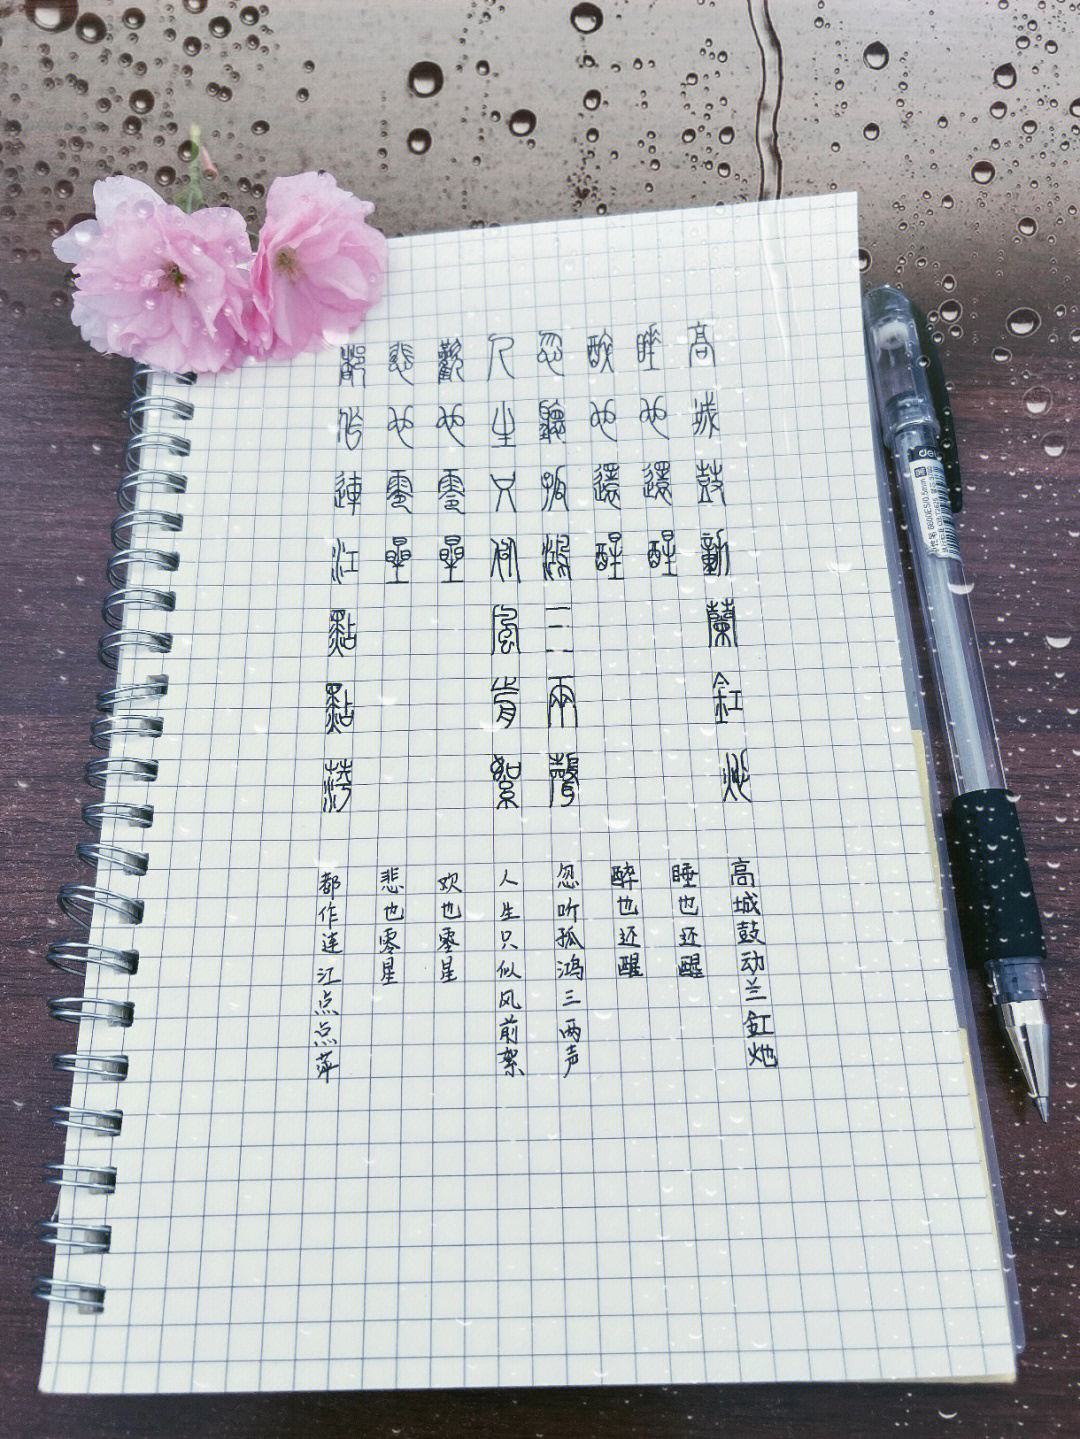 高城鼓動蘭釭灺
睡也還醒
醉也還醒
忽聽孤鴻三兩聲
人生只似風前絮
歡也零星
悲也零星
都作連江點點萍
高城鼓动兰釭灺
睡也还醒
醉也还醒
忽听孤鸿三两声
人生只似风前絮
欢也零星
悲也零星
都作连江点点萍
deli